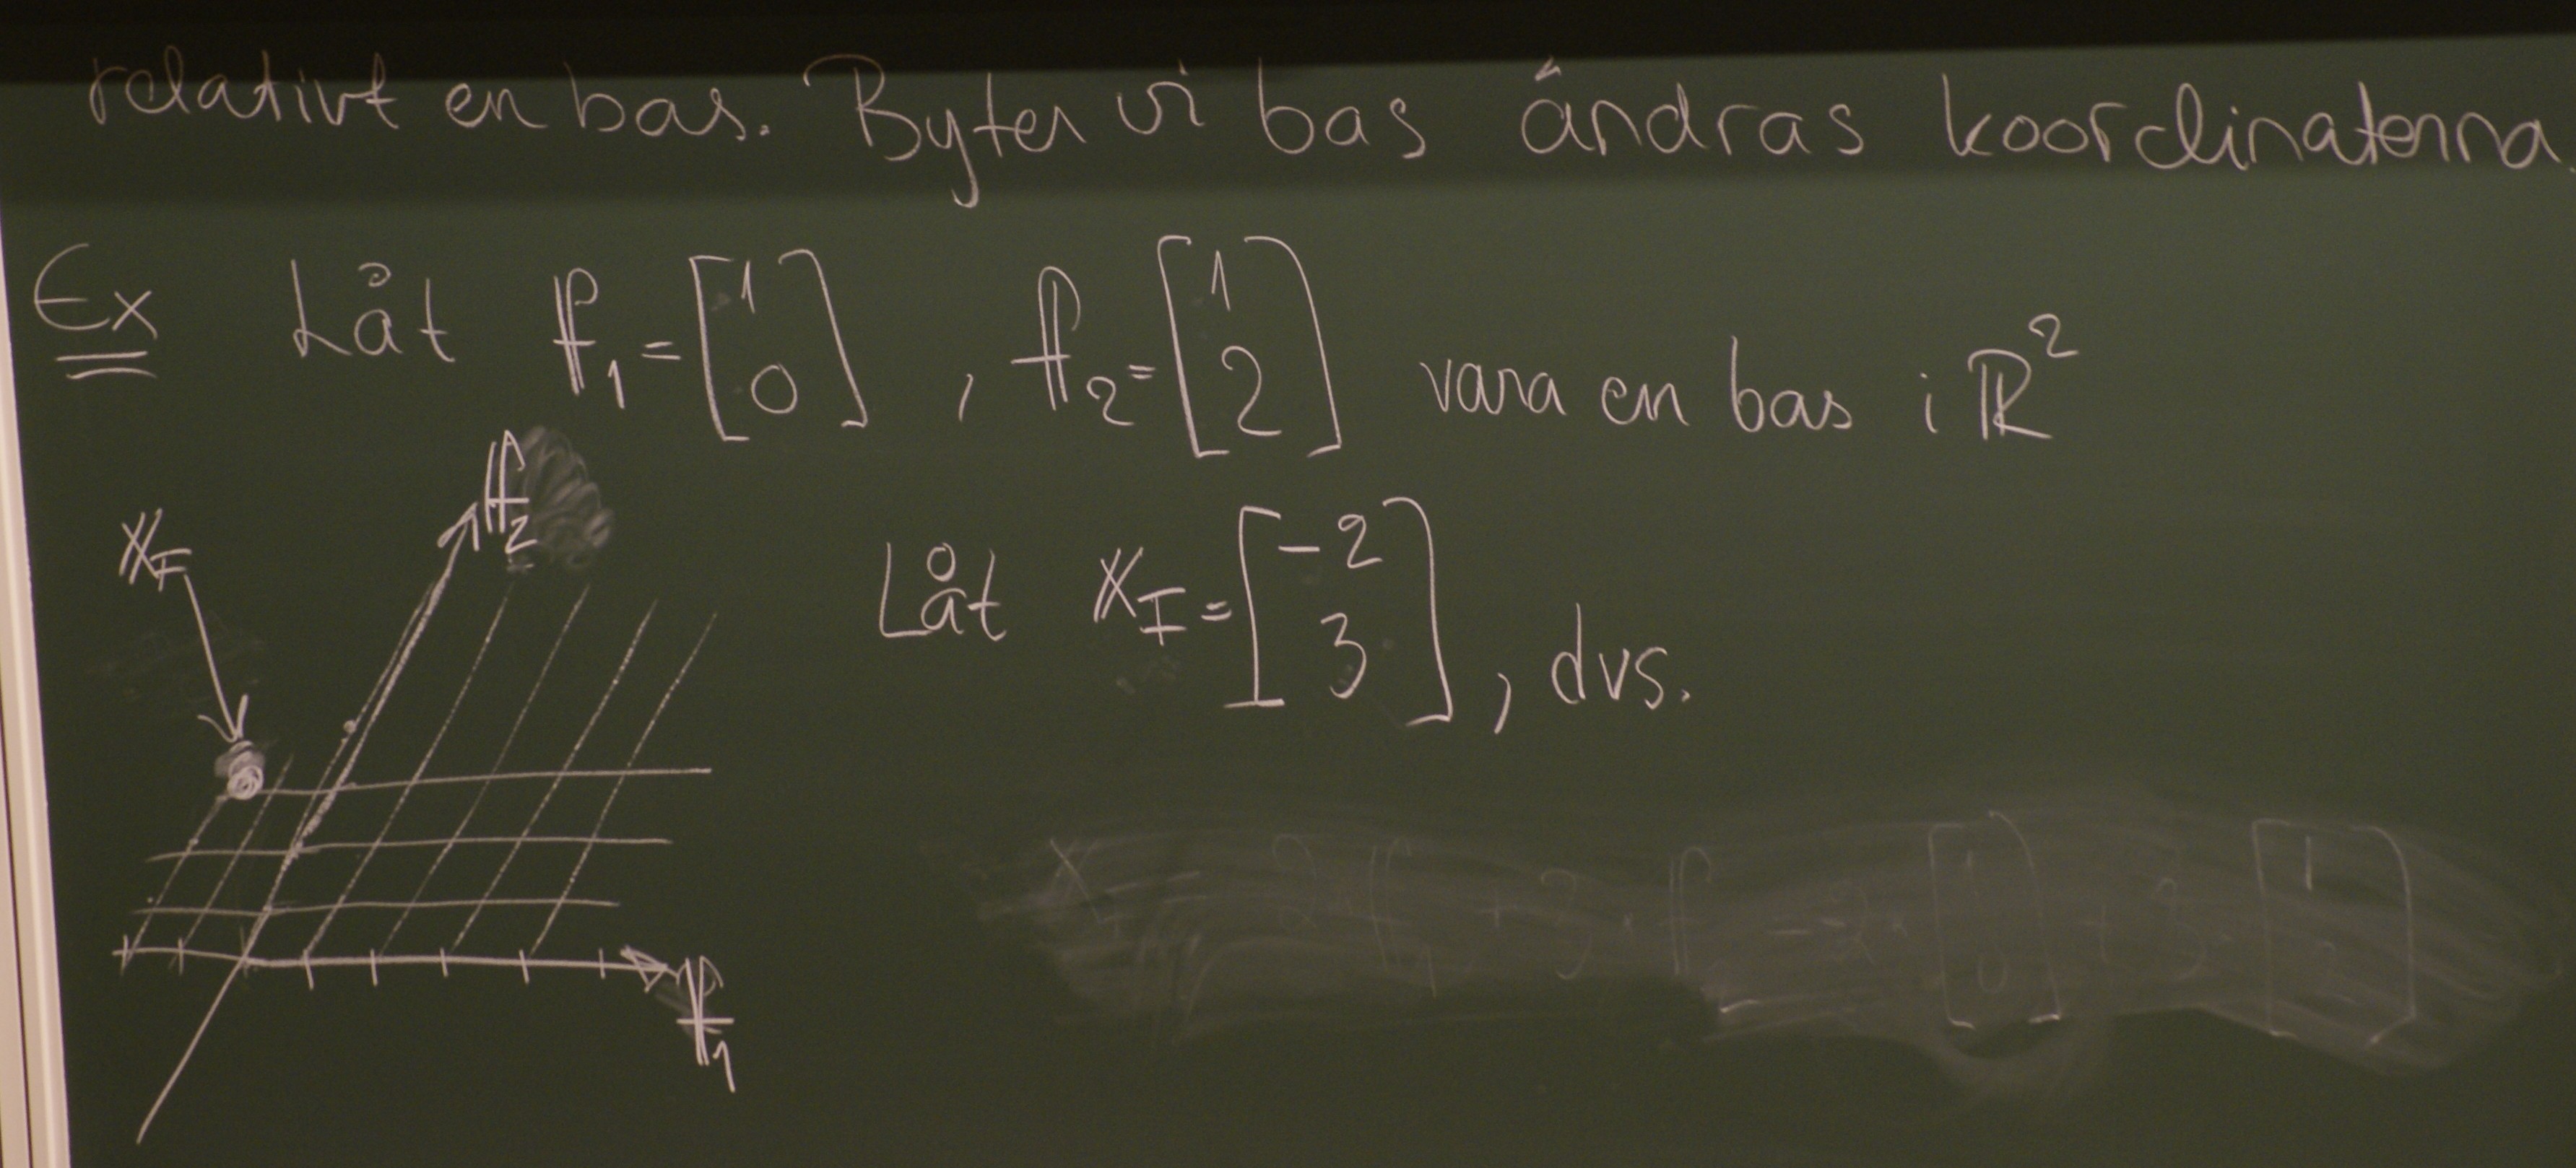 relativt en bas. Byter vi bas ändras koordinaterna.
Ex Låt f₁ = [1 0], f₂ = [1 2] vara en bas i ℝ²
f₂
x_F
Låt x_I = [-2 3], dvs.
f₁